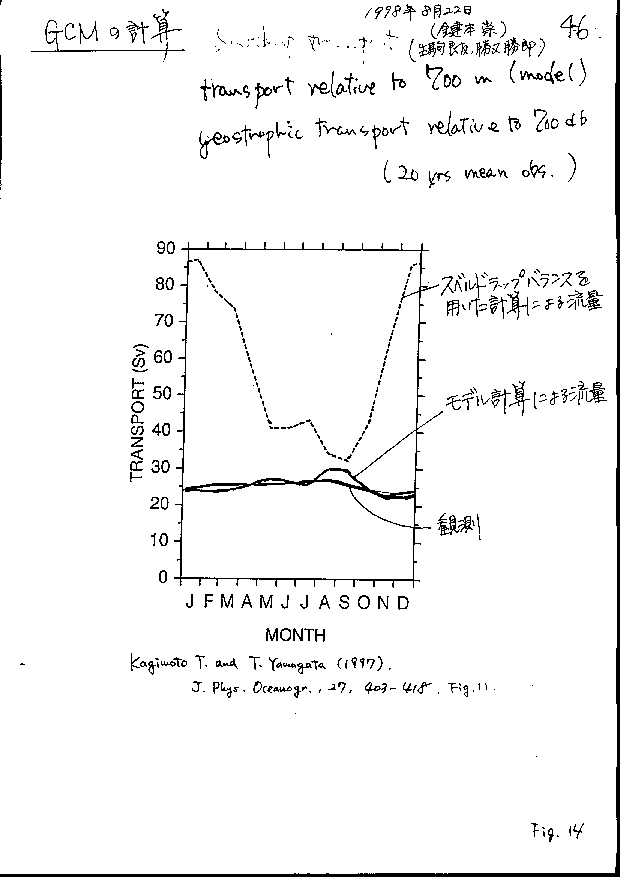 1998年8月22日
GCMの計算
(鍵本 崇)
46
transport relative to 700 m (model)
geostrophic transport relative to 700 db
(20 yrs mean obs.)
90
80
70
60
50
40
30
20
10
0
TRANSPORT (Sv)
スベルドラップバランスを
用いた計算による流量
モデル計算による流量
観測
J F M A M J J A S O N D
MONTH
Kagimoto T. and T. Yamagata (1997).
J. Phys. Oceanogr., 27, 403-418, Fig.11.
Fig. 14